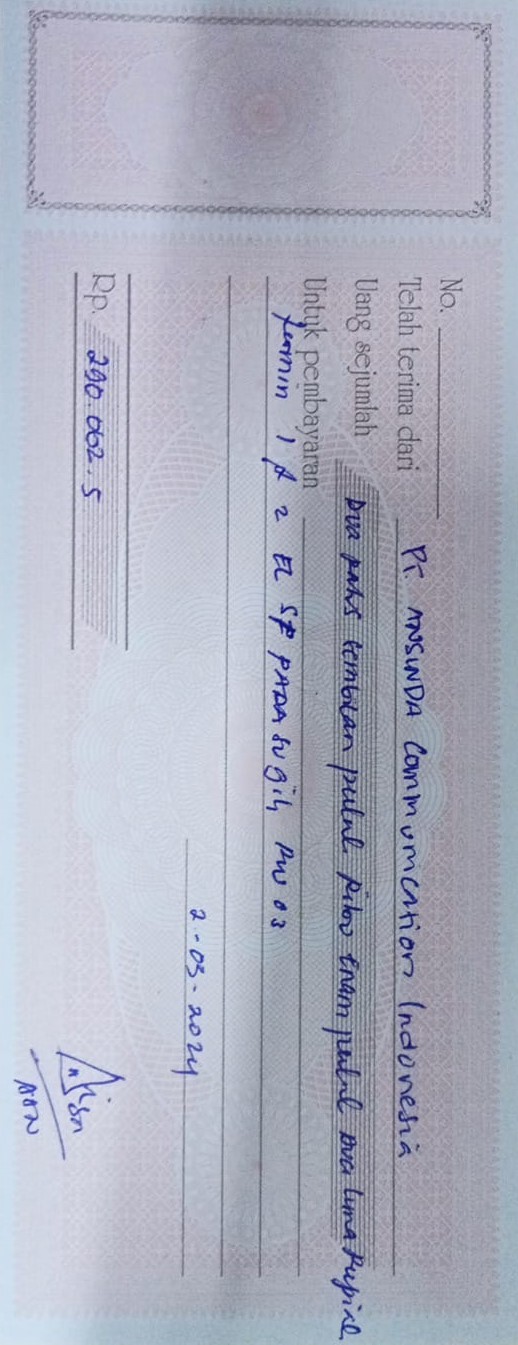 No.
Telah terima dari PT. ANSINDA Communication Indonesia
Uang sejumlah Dua ratus sembilan puluh Ribu Enam puluh Dua lima Rupiah
Untuk pembayaran
termin 1 & 2 EL SF PADASUgih RW 03
2-03-2024
Rp. 290.062.5
AAN